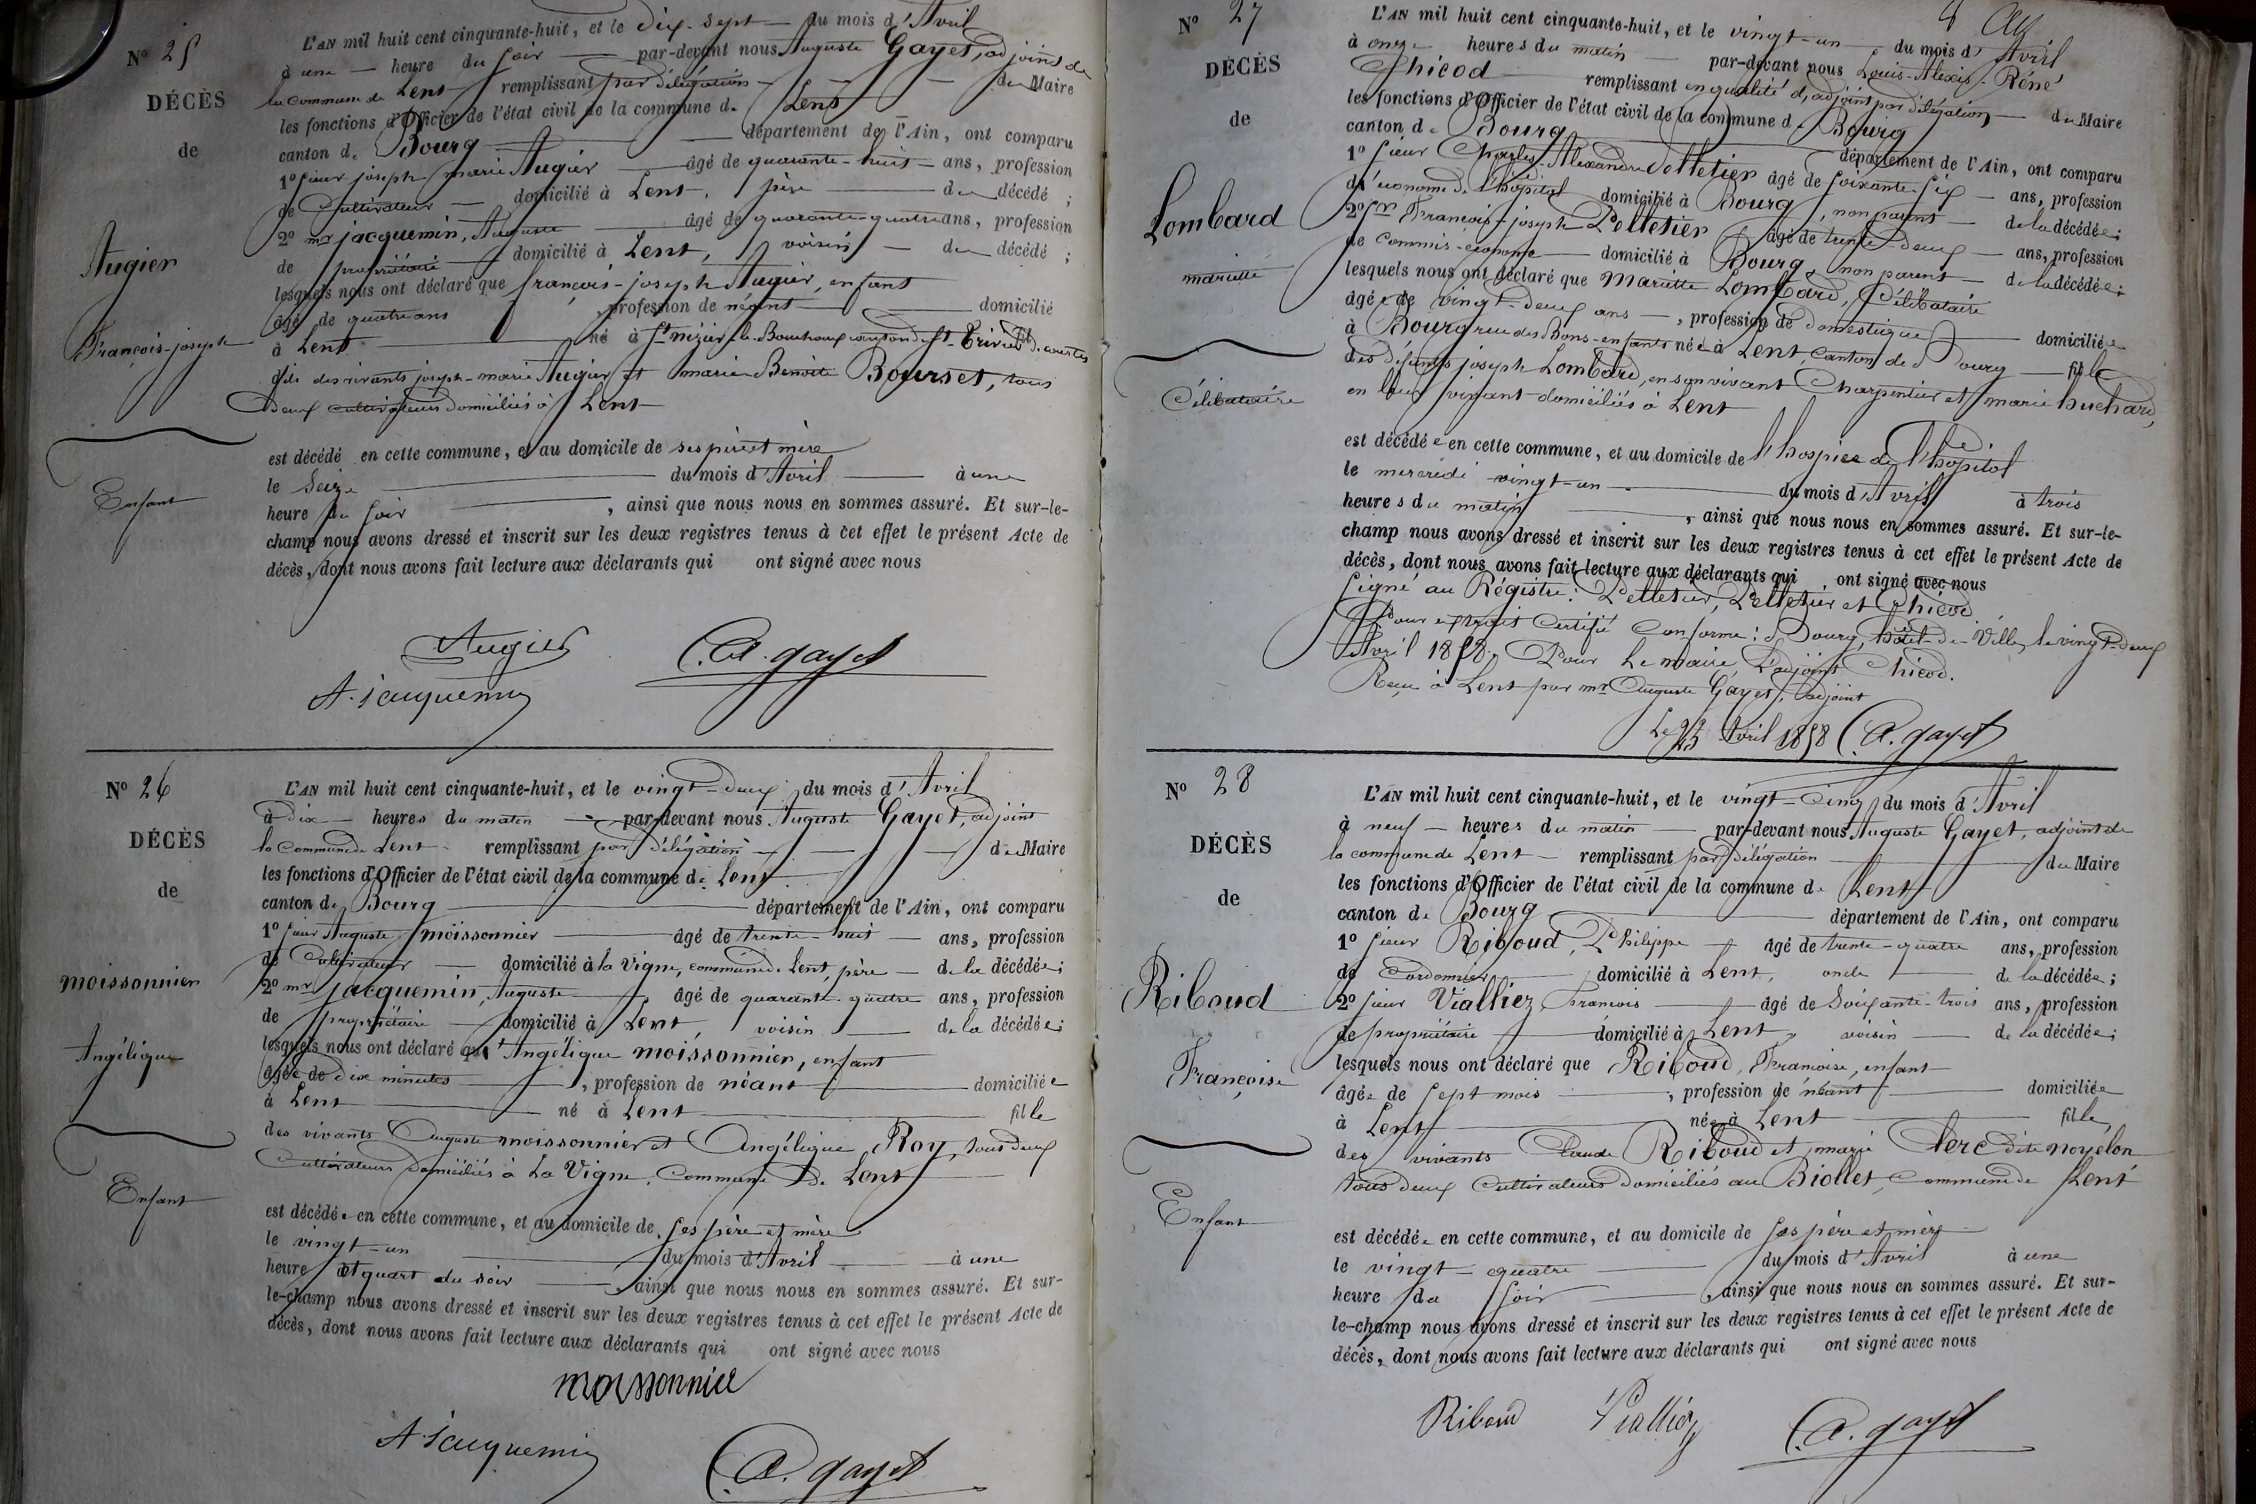 N° 25
DÉCÈS
de
Augier
François-joseph
Enfant
L'AN mil huit cent cinquante-huit, et le dix-sept du mois d'Avril
à une heure du soir par-devant nous Auguste Gayet, adjoint de
la commune de Lent remplissant par délégation du Maire
les fonctions d'Officier de l'état civil de la commune de Lent
canton de Bourg département de l'Ain, ont comparu
1° sieur joseph marie Augier âgé de quarante-huit ans, profession
de Cultivateur domicilié à Lent, père du décédé ;
2° mr jacquemin, Auguste âgé de quarante-quatre ans, profession
de propriétaire domicilié à Lent, voisin du décédé ;
lesquels nous ont déclaré que françois-joseph Augier, enfant
âgé de quatre ans , profession de néant domicilié
à Lent né à St nizier-le-Bouchoux canton de St-Trivier de courtes
fils des vivants joseph-marie Augier et marie Benoite Bourset, tous
deux cultivateurs domiciliés à Lent
est décédé en cette commune, et au domicile de ses père et mère
le Seize du mois d'Avril à une
heure du soir , ainsi que nous nous en sommes assuré. Et sur-le-
champ nous avons dressé et inscrit sur les deux registres tenus à cet effet le présent Acte de
décès, dont nous avons fait lecture aux déclarants qui ont signé avec nous
Augier
A. jauquemin
C. A. gayet
N° 26
DÉCÈS
de
moissonnier
Angélique
Enfant
L'AN mil huit cent cinquante-huit, et le vingt-deux du mois d'Avril
à dix heures du matin par-devant nous Auguste Gayet, adjoint
la commune de Lent remplissant par délégation du Maire
les fonctions d'Officier de l'état civil de la commune de Lent
canton de Bourg département de l'Ain, ont comparu
1° sieur Auguste moissonnier âgé de trente-huit ans, profession
de Cultivateur domicilié à la Vigne, commune de Lent, père de la décédée ;
2° mr jacquemin, Auguste âgé de quarante-quatre ans, profession
de propriétaire domicilié à Lent, voisin de la décédée ;
lesquels nous ont déclaré que Angélique moissonnier, enfant
âgée de dix minutes , profession de néant domiciliée
à Lent né à Lent fille
des vivants Auguste moissonnier et Angélique Roy, tous deux
Cultivateurs domiciliés à La Vigne, Commune de Lent
est décédée en cette commune, et au domicile de ses père et mère
le vingt-un du mois d'Avril à une
heure et quart du soir ainsi que nous nous en sommes assuré. Et sur-
le-champ nous avons dressé et inscrit sur les deux registres tenus à cet effet le présent Acte de
décès, dont nous avons fait lecture aux déclarants qui ont signé avec nous
moissonnier
A. jauquemin
C. A. gayet
N° 27
DÉCÈS
de
Lombard
mariette
Célibataire
L'AN mil huit cent cinquante-huit, et le vingt-un du mois d'Avril
à onze heures du matin par-devant nous Louis-Alexis-Réné
Chicod remplissant en qualité d'adjoint par délégation du Maire
les fonctions d'Officier de l'état civil de la commune de Bourg
canton de Bourg département de l'Ain, ont comparu
1° sieur Charles-Alexandre Pelletier âgé de soixante-six ans, profession
d'économe de l'hôpital domicilié à Bourg, non parent de la décédée ;
2° sr François-joseph Pelletier âgé de trente-deux ans, profession
de commis-économe domicilié à Bourg, non parent de la décédée ;
lesquels nous ont déclaré que Mariette Lombard, Célibataire
âgée de vingt-deux ans , profession de domestique domiciliée
à Bourg rue des Bons-enfants née à Lent, canton de Bourg fille
des défunts joseph Lombard, en son vivant Charpentier et marie huchard,
en leur vivant domiciliés à Lent
est décédée en cette commune, et au domicile de l'hospice de l'hôpital
le mercredi vingt-un du mois d'Avril à trois
heures du matin , ainsi que nous nous en sommes assuré. Et sur-le-
champ nous avons dressé et inscrit sur les deux registres tenus à cet effet le présent Acte de
décès, dont nous avons fait lecture aux déclarants qui ont signé avec nous
Signé au Régistre : Pelletier, Pelletier et Chicod
Pour extrait Certifié Conforme : à Bourg, hôtel-de-Ville, le vingt-deux
Avril 1858. Pour Le maire, L'adjoint Chicod.
Reçu à Lent par mr Auguste Gayet, adjoint
Le 25 Avril 1858 C. A. gayet
N° 28
DÉCÈS
de
Riboud
Françoise
Enfant
L'AN mil huit cent cinquante-huit, et le vingt-cinq du mois d'Avril
à neuf heures du matin par-devant nous Auguste Gayet, adjoint de
la commune de Lent remplissant par délégation du Maire
les fonctions d'Officier de l'état civil de la commune de Lent
canton de Bourg département de l'Ain, ont comparu
1° sieur Riboud, Philippe âgé de trente-quatre ans, profession
de Cordonnier domicilié à Lent, oncle de la décédée ;
2° sieur Vialliez, françois âgé de Soixante-trois ans, profession
de propriétaire domicilié à Lent, voisin de la décédée ;
lesquels nous ont déclaré que Riboud, Françoise, enfant
âgée de sept mois , profession de néant domiciliée
à Lent née à Lent fille
des vivants Claude Riboud et marie Clerc dite noyelon
tous deux Cultivateurs domiciliés au Biollet, Commune de Lent
est décédée en cette commune, et au domicile de ses père et mère
le vingt-quatre du mois d'Avril à une
heure du soir ainsi que nous nous en sommes assuré. Et sur-
le-champ nous avons dressé et inscrit sur les deux registres tenus à cet effet le présent Acte de
décès, dont nous avons fait lecture aux déclarants qui ont signé avec nous
Riboud Vialliez
C. A. gayet